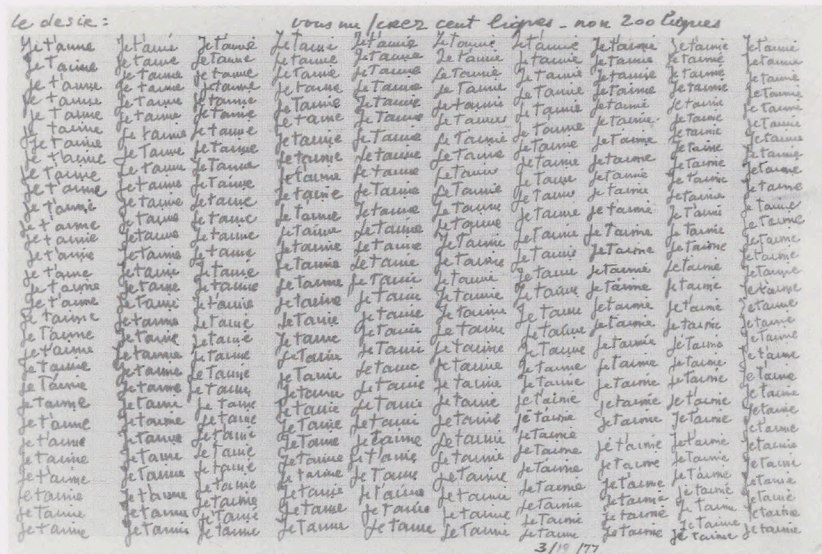 le desir : vous me ferez cent lignes - non 200 lignes
Je t'aime Je t'aime Je t'aime Je t'aime Je t'aime Je t'aime Je t'aime Je t'aime Je t'aime Je t'aime
Je t'aime Je t'aime Je t'aime Je t'aime Je t'aime Je t'aime Je t'aime Je t'aime Je t'aime Je t'aime
Je t'aime Je t'aime Je t'aime Je t'aime Je t'aime Je t'aime Je t'aime Je t'aime Je t'aime Je t'aime
Je t'aime Je t'aime Je t'aime Je t'aime Je t'aime Je t'aime Je t'aime Je t'aime Je t'aime Je t'aime
Je t'aime Je t'aime Je t'aime Je t'aime Je t'aime Je t'aime Je t'aime Je t'aime Je t'aime Je t'aime
Je t'aime Je t'aime Je t'aime Je t'aime Je t'aime Je t'aime Je t'aime Je t'aime Je t'aime Je t'aime
Je t'aime Je t'aime Je t'aime Je t'aime Je t'aime Je t'aime Je t'aime Je t'aime Je t'aime Je t'aime
Je t'aime Je t'aime Je t'aime Je t'aime Je t'aime Je t'aime Je t'aime Je t'aime Je t'aime Je t'aime
Je t'aime Je t'aime Je t'aime Je t'aime Je t'aime Je t'aime Je t'aime Je t'aime Je t'aime Je t'aime
Je t'aime Je t'aime Je t'aime Je t'aime Je t'aime Je t'aime Je t'aime Je t'aime Je t'aime Je t'aime
Je t'aime Je t'aime Je t'aime Je t'aime Je t'aime Je t'aime Je t'aime Je t'aime Je t'aime Je t'aime
Je t'aime Je t'aime Je t'aime Je t'aime Je t'aime Je t'aime Je t'aime Je t'aime Je t'aime Je t'aime
Je t'aime Je t'aime Je t'aime Je t'aime Je t'aime Je t'aime Je t'aime Je t'aime Je t'aime Je t'aime
Je t'aime Je t'aime Je t'aime Je t'aime Je t'aime Je t'aime Je t'aime Je t'aime Je t'aime Je t'aime
Je t'aime Je t'aime Je t'aime Je t'aime Je t'aime Je t'aime Je t'aime Je t'aime Je t'aime Je t'aime
Je t'aime Je t'aime Je t'aime Je t'aime Je t'aime Je t'aime Je t'aime Je t'aime Je t'aime Je t'aime
Je t'aime Je t'aime Je t'aime Je t'aime Je t'aime Je t'aime Je t'aime Je t'aime Je t'aime Je t'aime
Je t'aime Je t'aime Je t'aime Je t'aime Je t'aime Je t'aime Je t'aime Je t'aime Je t'aime Je t'aime
Je t'aime Je t'aime Je t'aime Je t'aime Je t'aime Je t'aime Je t'aime Je t'aime Je t'aime Je t'aime
Je t'aime Je t'aime Je t'aime Je t'aime Je t'aime Je t'aime Je t'aime Je t'aime Je t'aime Je t'aime
Je t'aime Je t'aime Je t'aime Je t'aime Je t'aime Je t'aime Je t'aime Je t'aime Je t'aime Je t'aime
Je t'aime Je t'aime Je t'aime Je t'aime Je t'aime Je t'aime Je t'aime Je t'aime Je t'aime Je t'aime
Je t'aime Je t'aime Je t'aime Je t'aime Je t'aime Je t'aime Je t'aime Je t'aime Je t'aime Je t'aime
Je t'aime Je t'aime Je t'aime Je t'aime Je t'aime Je t'aime Je t'aime Je t'aime Je t'aime Je t'aime
Je t'aime Je t'aime Je t'aime Je t'aime Je t'aime Je t'aime Je t'aime Je t'aime Je t'aime Je t'aime
Je t'aime Je t'aime Je t'aime Je t'aime Je t'aime Je t'aime Je t'aime Je t'aime Je t'aime Je t'aime
Je t'aime Je t'aime Je t'aime Je t'aime Je t'aime Je t'aime Je t'aime Je t'aime Je t'aime Je t'aime
Je t'aime Je t'aime Je t'aime Je t'aime Je t'aime Je t'aime Je t'aime Je t'aime Je t'aime Je t'aime
Je t'aime Je t'aime Je t'aime Je t'aime Je t'aime Je t'aime Je t'aime Je t'aime Je t'aime Je t'aime
Je t'aime Je t'aime Je t'aime Je t'aime Je t'aime Je t'aime Je t'aime Je t'aime Je t'aime Je t'aime